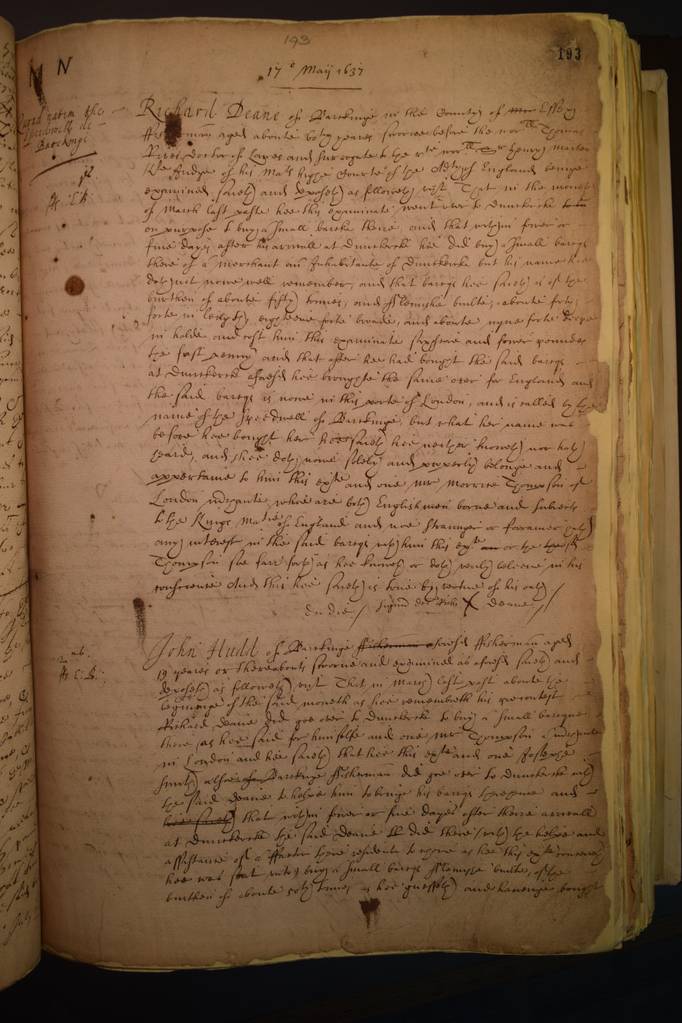 193
193
M N
17º Maij 1637
the
Speedwell de
Barkinge
Richard Deane of Barkinge in the County of Essex
ffisherman aged aboute yeares sworne before the wor:ll Thomas
Rives doctor of Lawes and Surrogate to the rte wor:ll Sr Henry Marten
Kte Judge of his Mats highe Courte of the Adtye of England beinge
examined saieth and deposeth as followeth vizt That in the moneth
of March last paste hee this examinate went over to Dunkerke
on purpose to buy a small barke there, and that within fower or
five dayes after his arrivall at Dunkerke hee did buy a small barque
there of a Merchant an Inhabitante of Dunkerke but his name hee
doth not nowe well remember, and that barque hee saieth is of the
burthen of aboute fifty tonnes, and fflemishe builte, aboute forty
foote in length eighteene foote broade, and aboute nyne foote deepe
in holde and cost him this examinate and fower poundes
the first penny and that after hee had bought the said barque
at Dunkerke aforesaid hee broughte the same over for England and
the said barque is nowe in this porte of London, and is called by the
name of the Speedwell of Barkinge, but what her name was
before hee bought her hee saieth hee neither knoweth nor hath
heard, and shee doth nowe solely and properly belonge and
appertaine to him this exate and one Mr Morrice Thompson of
London merchante, whoe are both Englishmen borne and subjects
to the Kings Matie of England and noe stranger or forrainer hath
any interest in the said barque with him this exate or the
Thompson soe farr forth as hee knoweth or doth verily beleeve in his
conscience And this hee saieth is true by vertue of his oath
Signum dci Richi X Deane
John Hudd of Barkinge aforesaid ffisherman aged
19 yeares or thereabouts sworne and examined as aforesaid saieth and
deposeth as followeth vizt That in March last past aboute the
beginninge of the said moneth as hee remembreth his precontest
Richard Deane did goe over to Dunkerke to buy a small barque
there as hee said for himselfe and one Mr Thompson a merchante
in London and hee saieth that hee this exate and one Josephe
Smith alsoe Barkinge ffisherman did goe over to Dunkerke with
the said Deane to helpe him to bringe his barque thence and
that within fower or five dayes after theire arrivall
at Dunkerke the said Deane did there with the helpe and
assistance of a ffactor there resident to whome as hee this exate
hee was sent unto buy a small barque fflemishe builte, of the
burthen of aboute tonnes as hee guesseth and haveinge bought